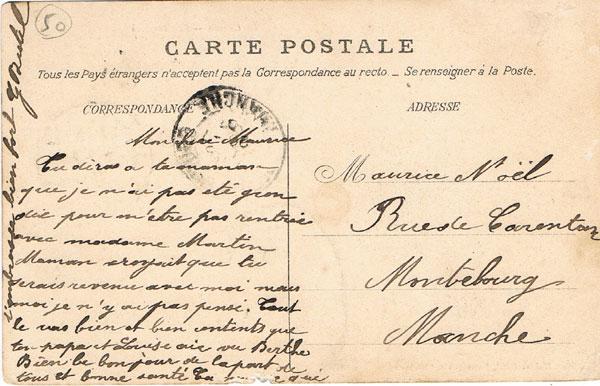 50
CARTE POSTALE
Tous les Pays étrangers n'acceptent pas la Correspondance au recto. _ Se renseigner à la Poste.
CORRESPONDANCE
ADRESSE
MANCHE
Mon cher Maurice
Tu diras a ta maman
que je n'ai pas été gron
dée pour m'être pas rentrée
avec madame Martin
Maman croyait que tu
serais revenu avec moi mais
moi je n'y ai pas pensé. Tout
le va bien et bien contents que
ton papa et Louise aie vu Berthe
Bien le bonjour de la part de
tous et bonne santé Ta qui
embrasse bien fort
Maurice Noël
Rue de Carentan
Montebourg
Manche